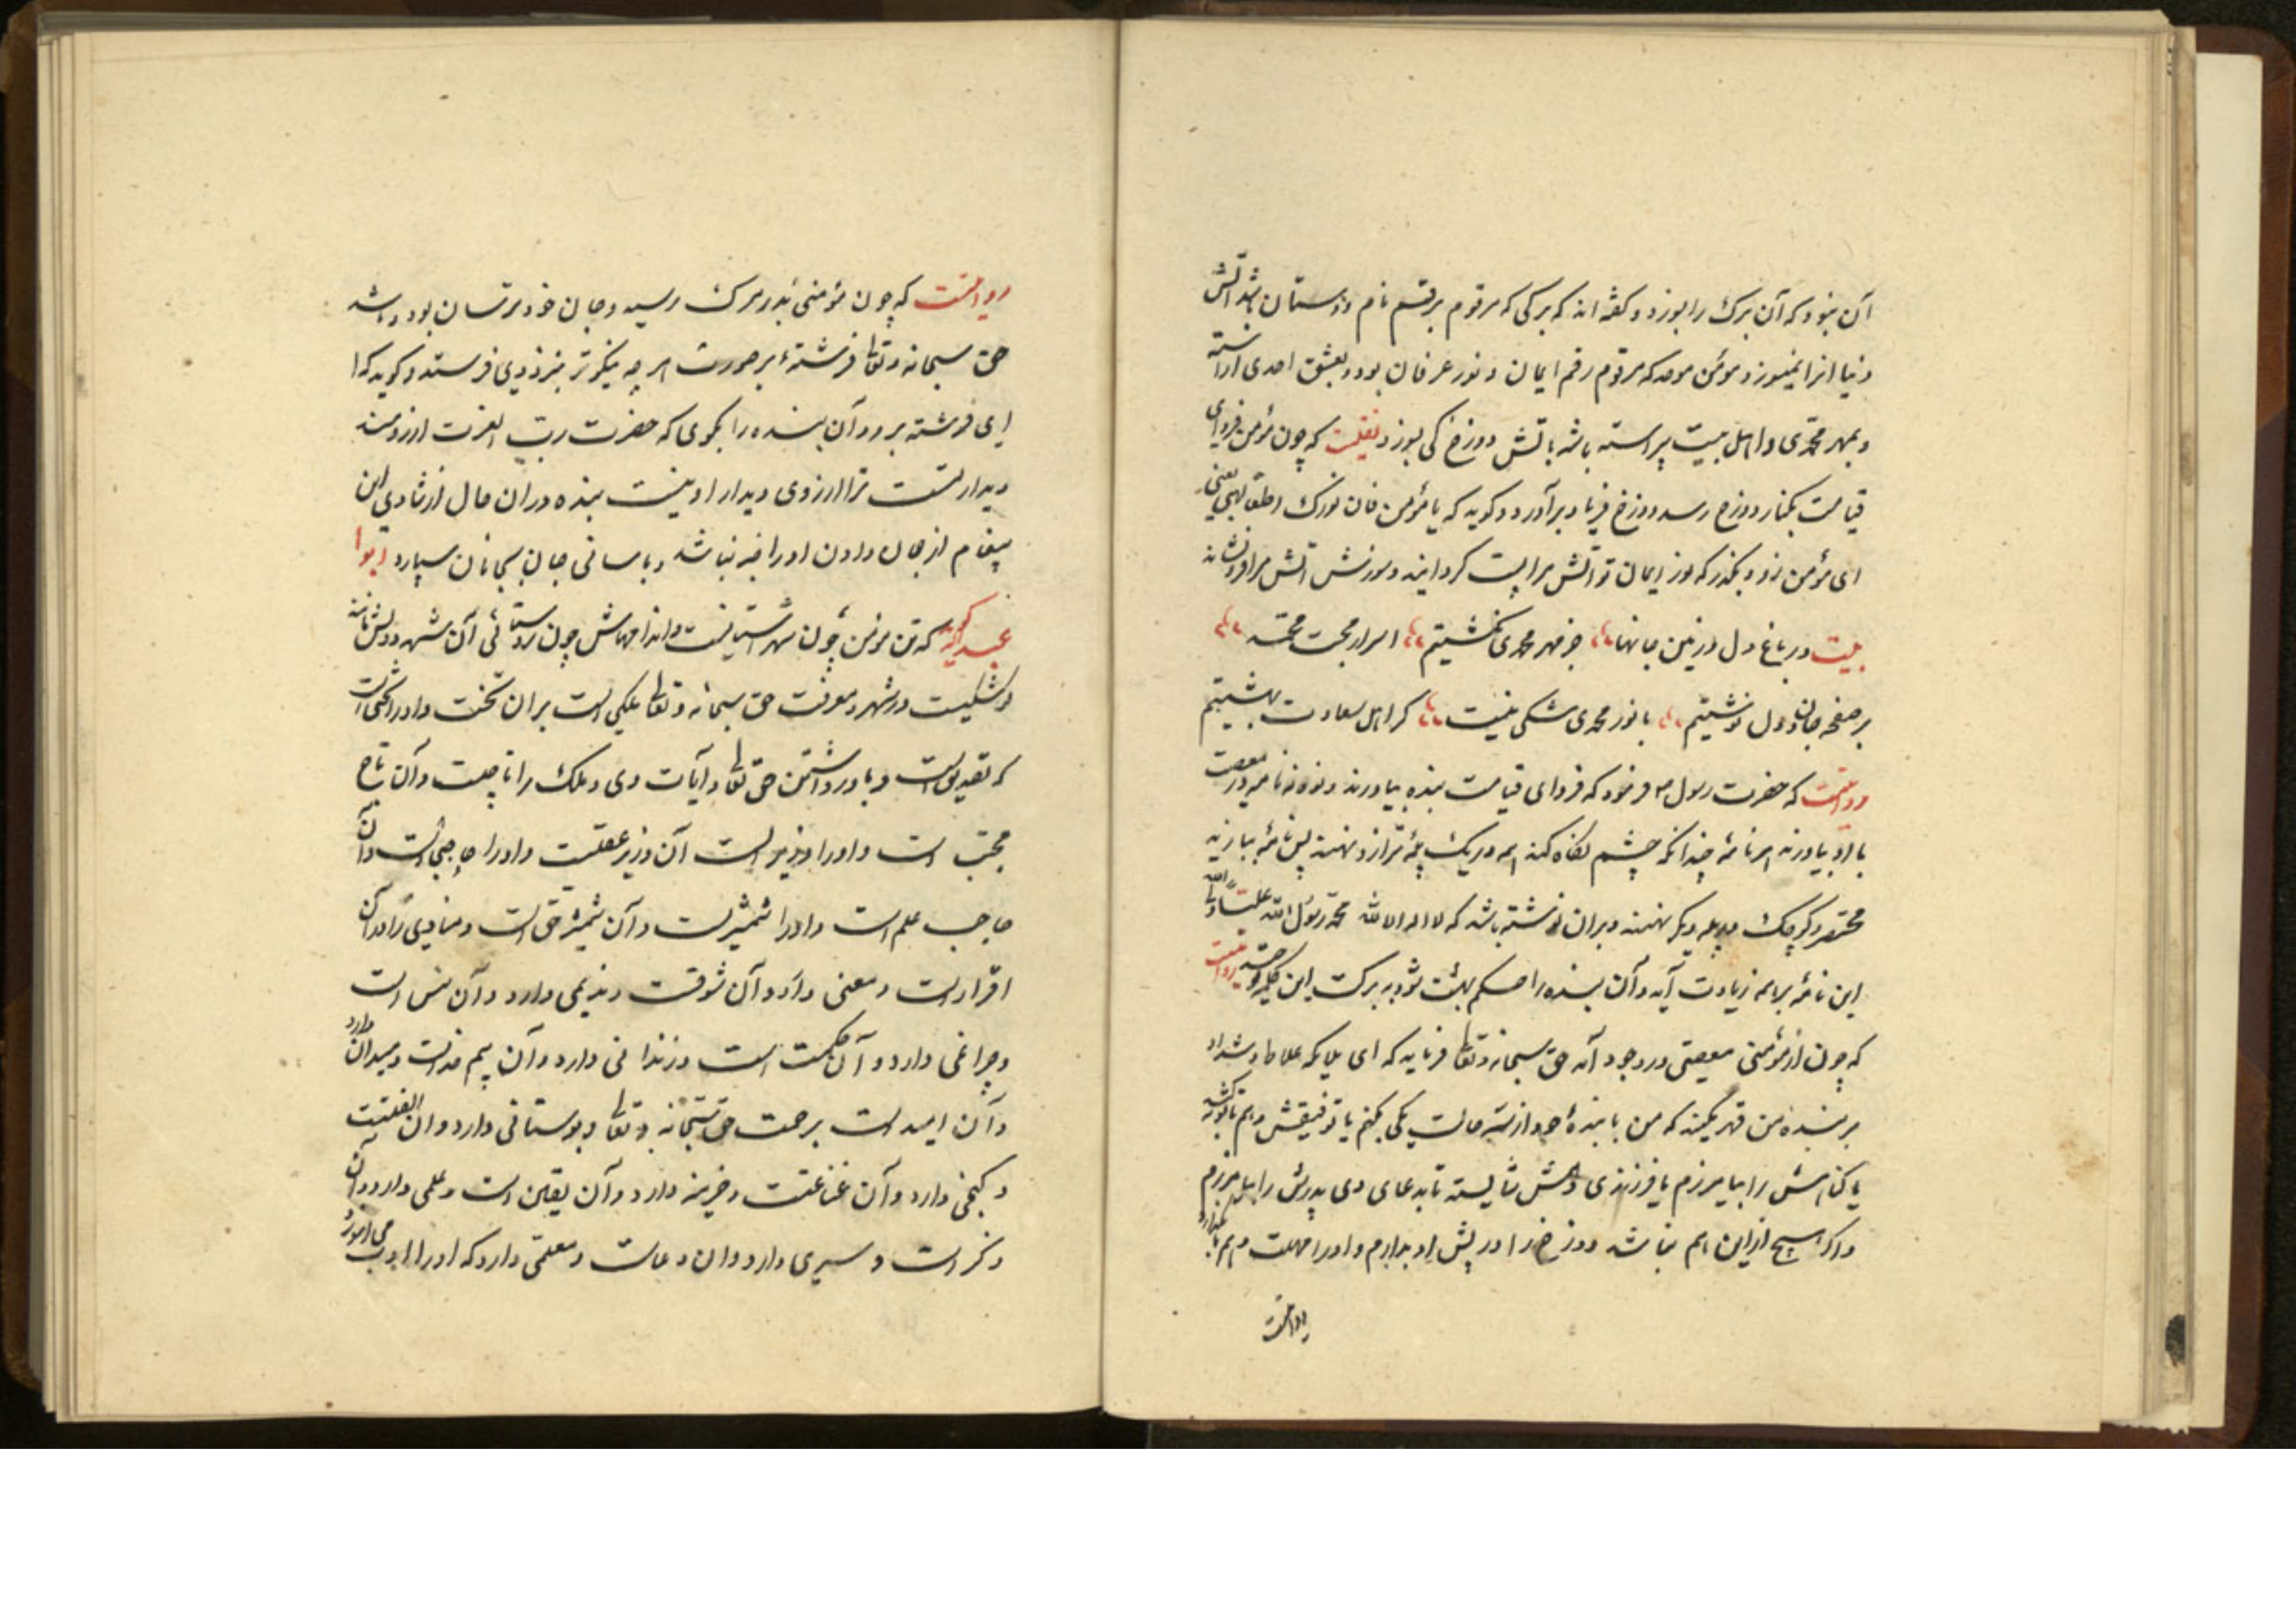 آن نبود که آن برک را بسوزد و کفته اند که برکی که مرقوم برقم نام دوستان باشد آتش
دنیا انرا نمیسوزد مومن موحد که مرقوم رقم ایمان و نور عرفان بود و بعشق احدی اراسته
و بمهر محمدی و اهل بیت پیراسته باشد باتش دوزخ کی سوزد نقلست که چون مؤمن فردای
قیامت بکنار دوزخ رسد دوزخ فریاد برآورد و کوید که یا مؤمن فان نورک اطفا لهبی یعنی
ای مؤمن زود بکذر که نور ایمان تو آتش مرا پست کردانید و سوزش آتش مرا فرو نشاند
بیت در باغ دل و زمین جانها جز مهر محمدی نکشتیم اسرار محبت محمد
بر صفحه جان و دل نوشتیم با نور محمدی شکی نیست کز اهل سعادت بهشتیم
روایتست که حضرت رسول فرمود که فردای قیامت بنده بیاورند و نود و نه نامه در معصیت
با او بیاورند هر نامهٔ چندانکه چشم نکاه کند همه در یک پلهٔ ترازو نهند پس نامهٔ بیارند
مختصر و کوچک در پله دیکر نهند و بران نوشته باشد که لا اله الا الله محمد رسول الله علی ولی الله
این نامه بر همه زیادت آید و آن بنده را حکم بهشت شود به برکت این کلمه روایتست
که چون از مؤمنی معصیتی در وجود آید حق سبحانه و تعالی فرماید که ای ملایکه غلاظ و شداد
بر بنده من قهر مکنید که من با بندهٔ خود از سه حالت یکی بکنم یا توفیقش دهم تا توبه کند
یا کناهش را بیامرزم یا فرزندی دهمش شایسته تا بدعای وی پدرش را بیامرزم
و اکر هیچ ازاین هم نباشد دوزخ را در پیش او بدارم و او را مهلت دهم تا
روایتست
روایتست که چون مؤمنی بدر مرک رسید و جان خود ترسان بود و باشد
حق سبحانه و تعالی فرشتهٔ بر صورت هر چه نیکوتر بنزد وی فرستد و کوید که
ای فرشته برو و آن بنده را بکوی که حضرت رب العزت ارزومند
دیدار تست ترا ارزوی دیدار او نیست بنده دران حال از شادی این
پیغام از جان دادن او را خبر نباشد و باسانی جان بجانان سپارد ابوا
عبدالله کوید که تن مومن چون شهرستانیست و اندامهاش چون روستائی آن شهر و دلش مانند
و شکیست در شهر و معرفت حق سبحانه و تعالی ملکی است بران تخت و او را تختی است
که تصدیق است و باور داشتن حق تعالی و آیات وی و ملک را تاجیست و آن تاج
محبت است و او را وزیر است آن وزیر عقلست و او را حاجبی است و آن
حاجب علم است و او را شمشیریست و آن شمشیر حق است و منادی دارد و آن
اقرار است و معنی دارد و آن شوقست و ندیمی دارد و آن انس است
و چراغی دارد و آن حکمت است و زندانی دارد و آن بیم خداست و میدان دارد
و آن امید است برحمت حق سبحانه و تعالی و بوستانی دارد و ان الفتست
و کنجی دارد و آن قناعتست و خزینه دارد و آن یقین است و علمی دارد و آن
ذکر است و سپری دارد و ان دعاست و معلمی دارد که او را ادب می آموزد